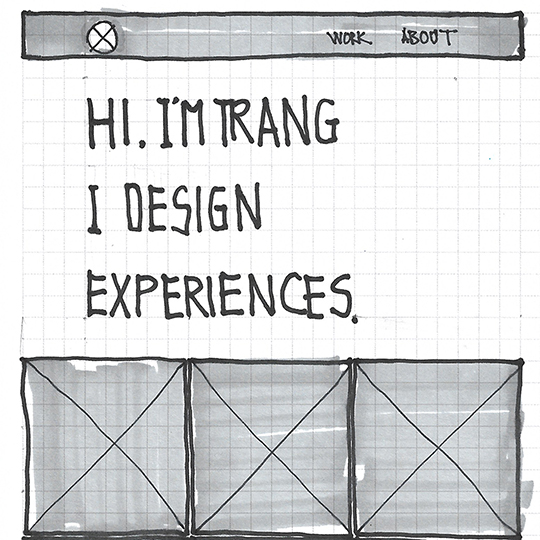 WORK ABOUT
HI. I'M TRANG
I DESIGN
EXPERIENCES.